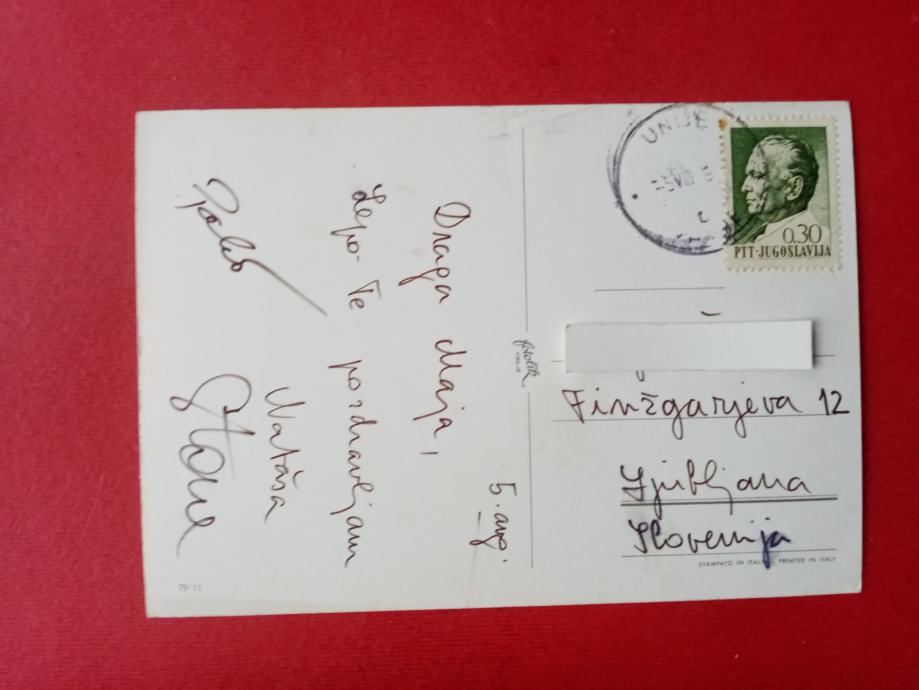 5. avg.
Draga Maja,
Lepo Te pozdravljam
Nataša
Stane
UNIJE
0.30
PTT-JUGOSLAVIJA
Finžgarjeva 12
Ljubljana
Slovenija
STAMPATO IN ITALY PRINTED IN ITALY